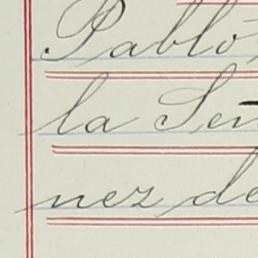 Pablo
la Señ
nez de